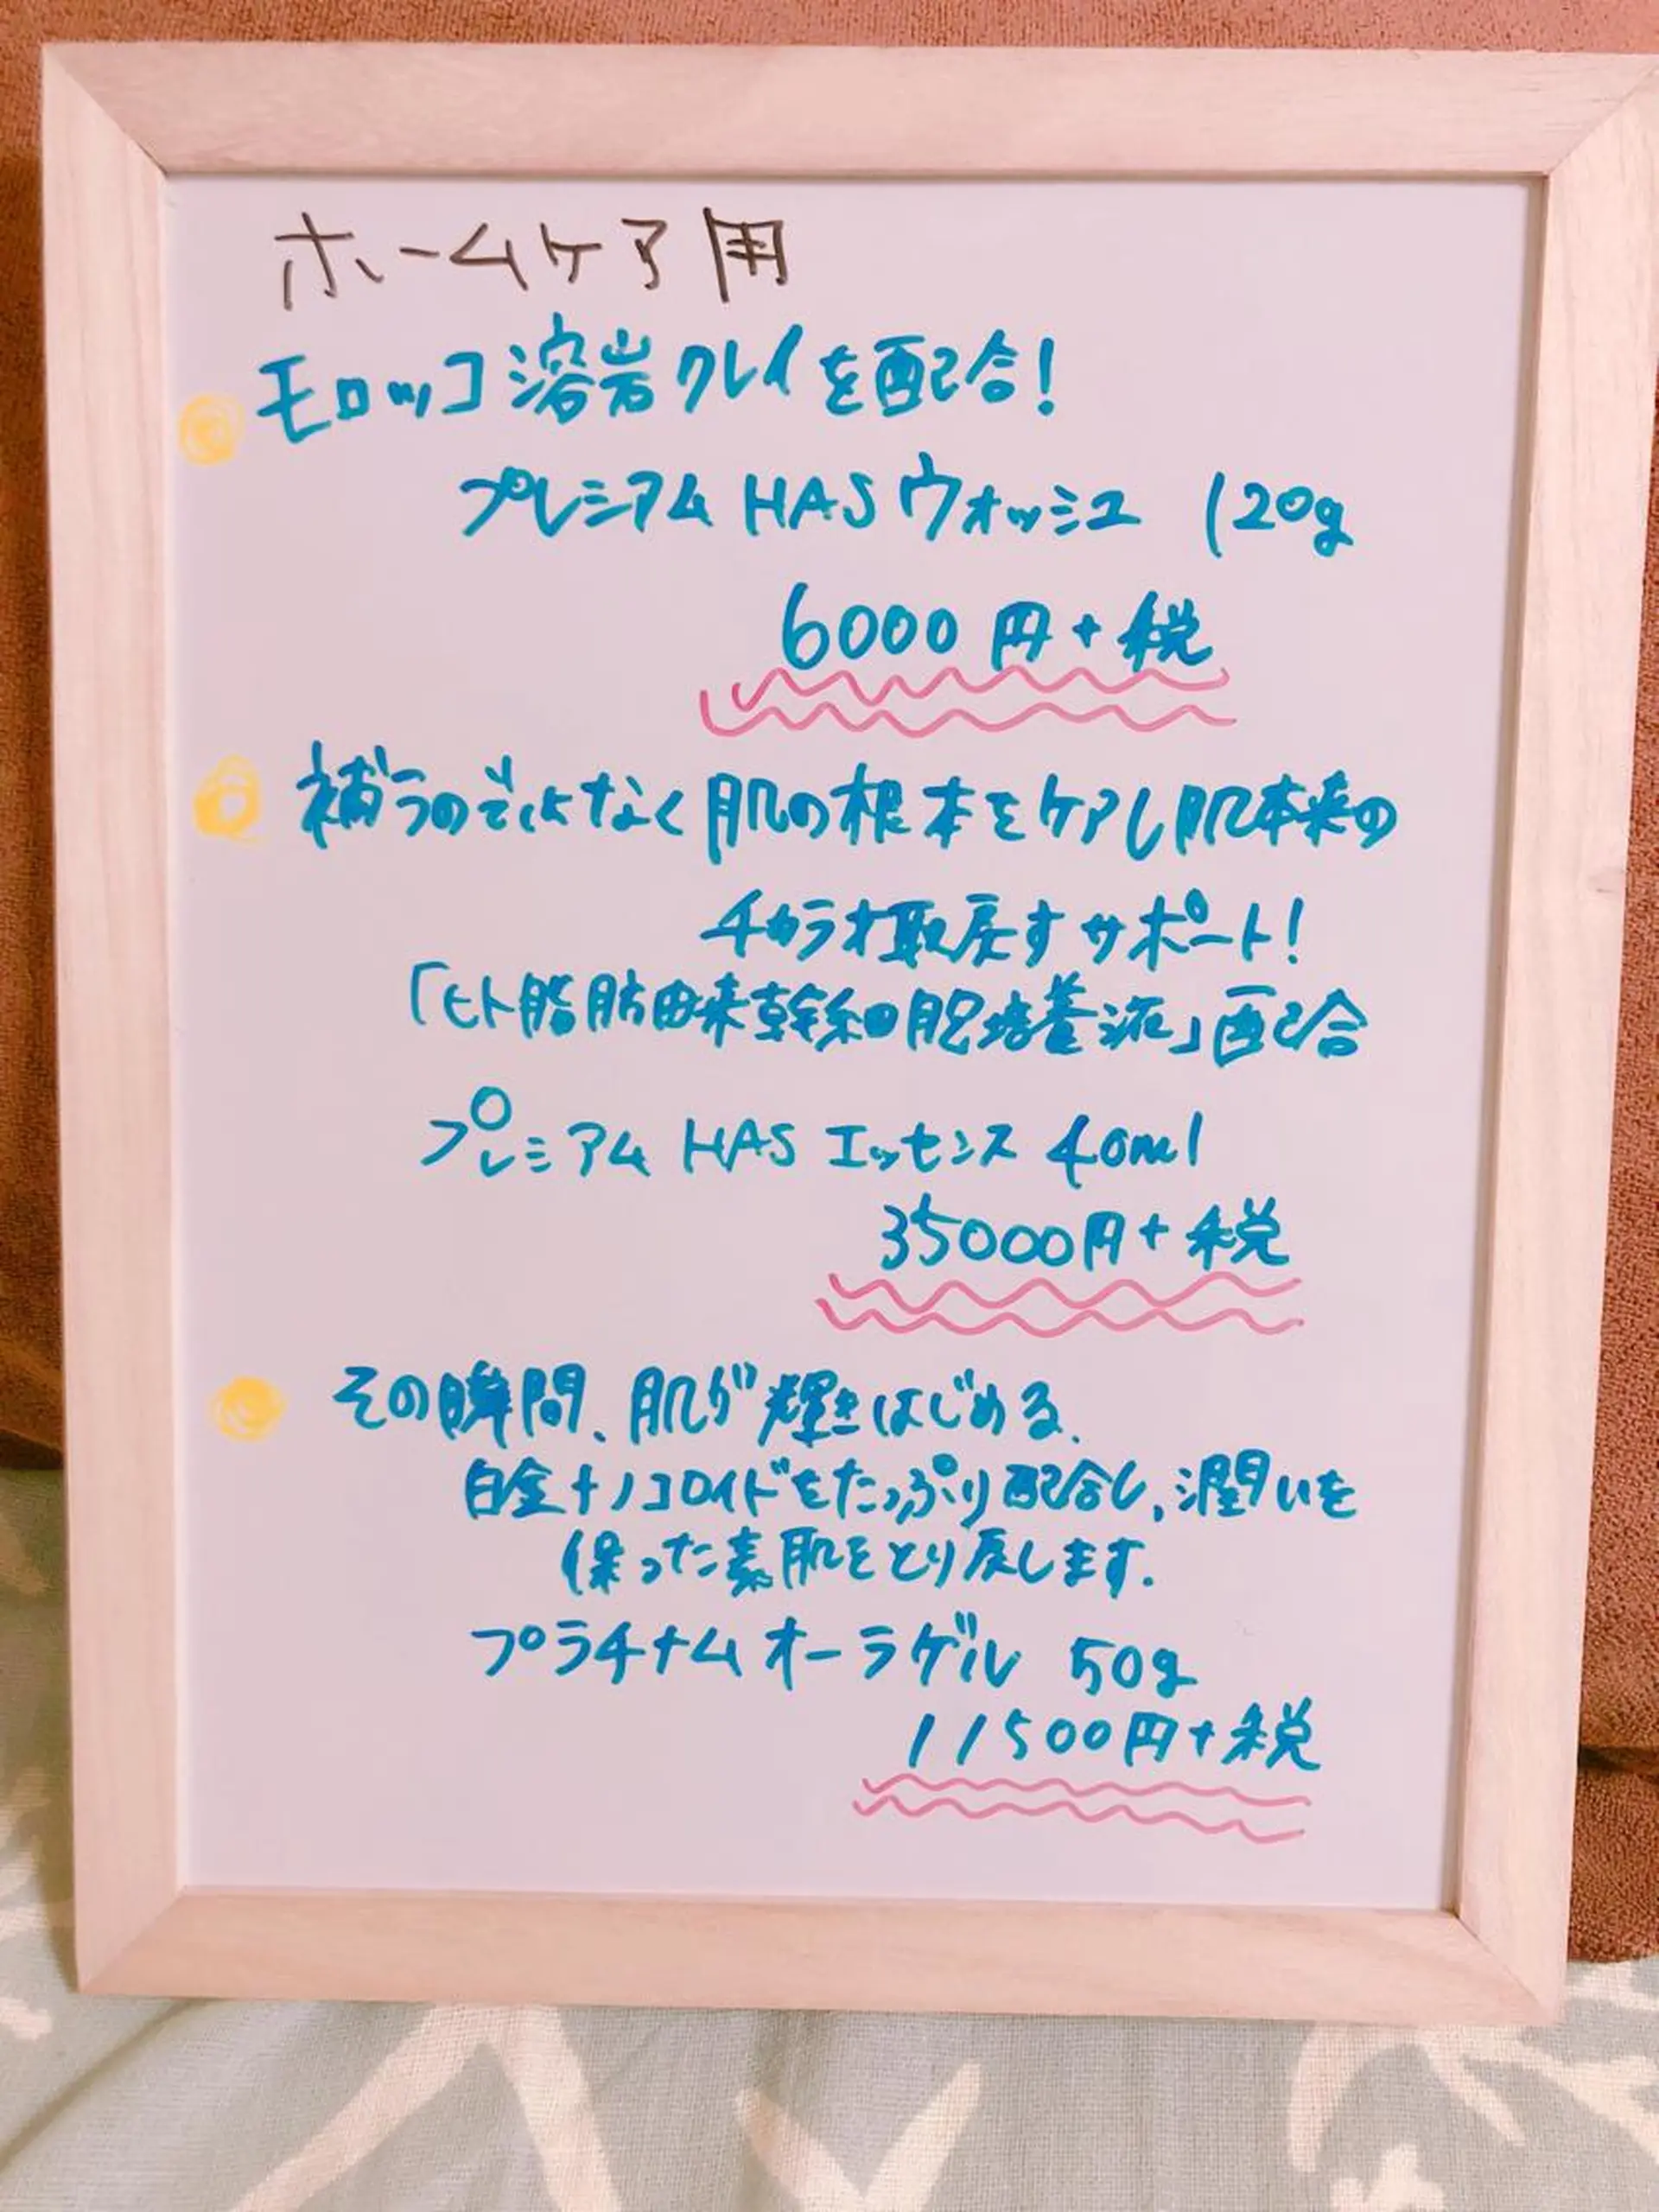 ホームケア用
モロッコ溶岩クレイを配合!
プレミアム HAS ウォッシュ 120g
6000円+税
補うのではなく肌の根本をケアし肌本来の
チカラオ取戻すサポート!
「ヒト脂肪由来幹細胞培養液」配合
プレミアム HAS エッセンス 40ml
35000円+税
その瞬間、肌が輝きはじめる.
白金ナノコロイドをたっぷり配合し、潤いを
保った素肌をとり戻します.
プラチナム オーラゲル 50g
11500円+税